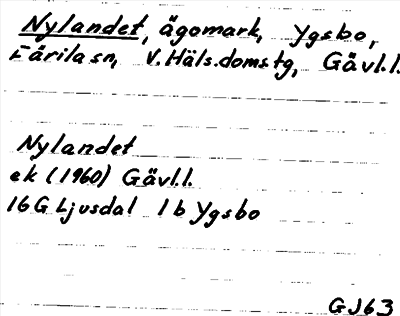 Nylandet, ägomark, Ygsbo,
Färila sn, V. Häls. domstg, Gävl.l.
Nylandet
ek (1960) Gävl.l.
16G Ljusdal 1b Ygsbo
GJ63